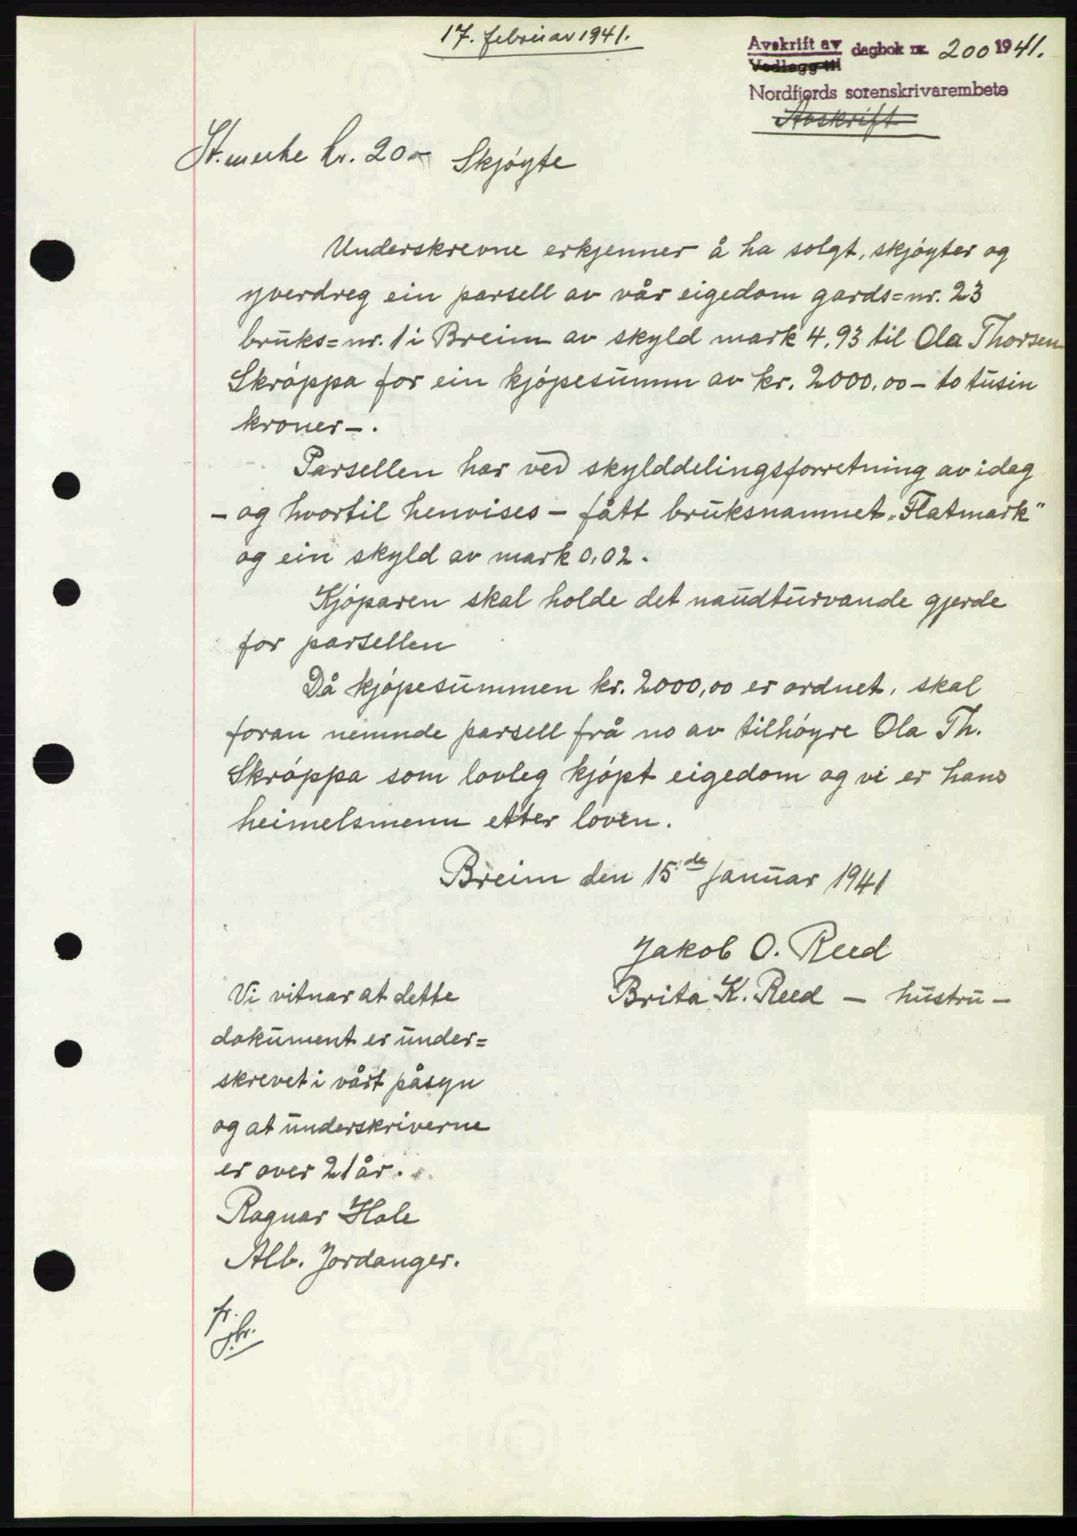 17. februar 1941.
Avskrift av dagbok nr. 200 1941.
Vedlegg til
Nordfjords sorenskrivarembete
Avskrift
St.merke kr. 20.- Skjøyte
Underskrevne erkjenner å ha solgt, skjøyter og
yverdreg ein parsell av vår eigedom gards=nr. 23
bruks=nr. 1 i Breim av skyld mark 4,93 til Ola Thorsen
Skråppa for ein kjøpesumm av kr. 2000,00 – to tusin
kroner –.
Parsellen har ved skylddelingsforretning av idag
– og hvortil henvises – fått bruksnamnet „Flatmark"
og ein skyld av mark 0,02.
Kjøparen skal holde det naudturvande gjerde
for parsellen
Då kjøpesummen kr. 2000,00 er ordnet, skal
foran nemnde parsell frå no av tilhøyre Ola Th.
Skråppa som lovleg kjøpt eigedom og vi er hans
heimelsmenn etter loven.
Breim den 15.de januar 1941
Jakob O. Reed
Brita K. Reed – hustru –
Vi vitnar at dette
dokument er under=
skrevet i vårt påsyn
og at underskriverne
er over 21 år.
Ragnar Hole
Alb. Jordanger.